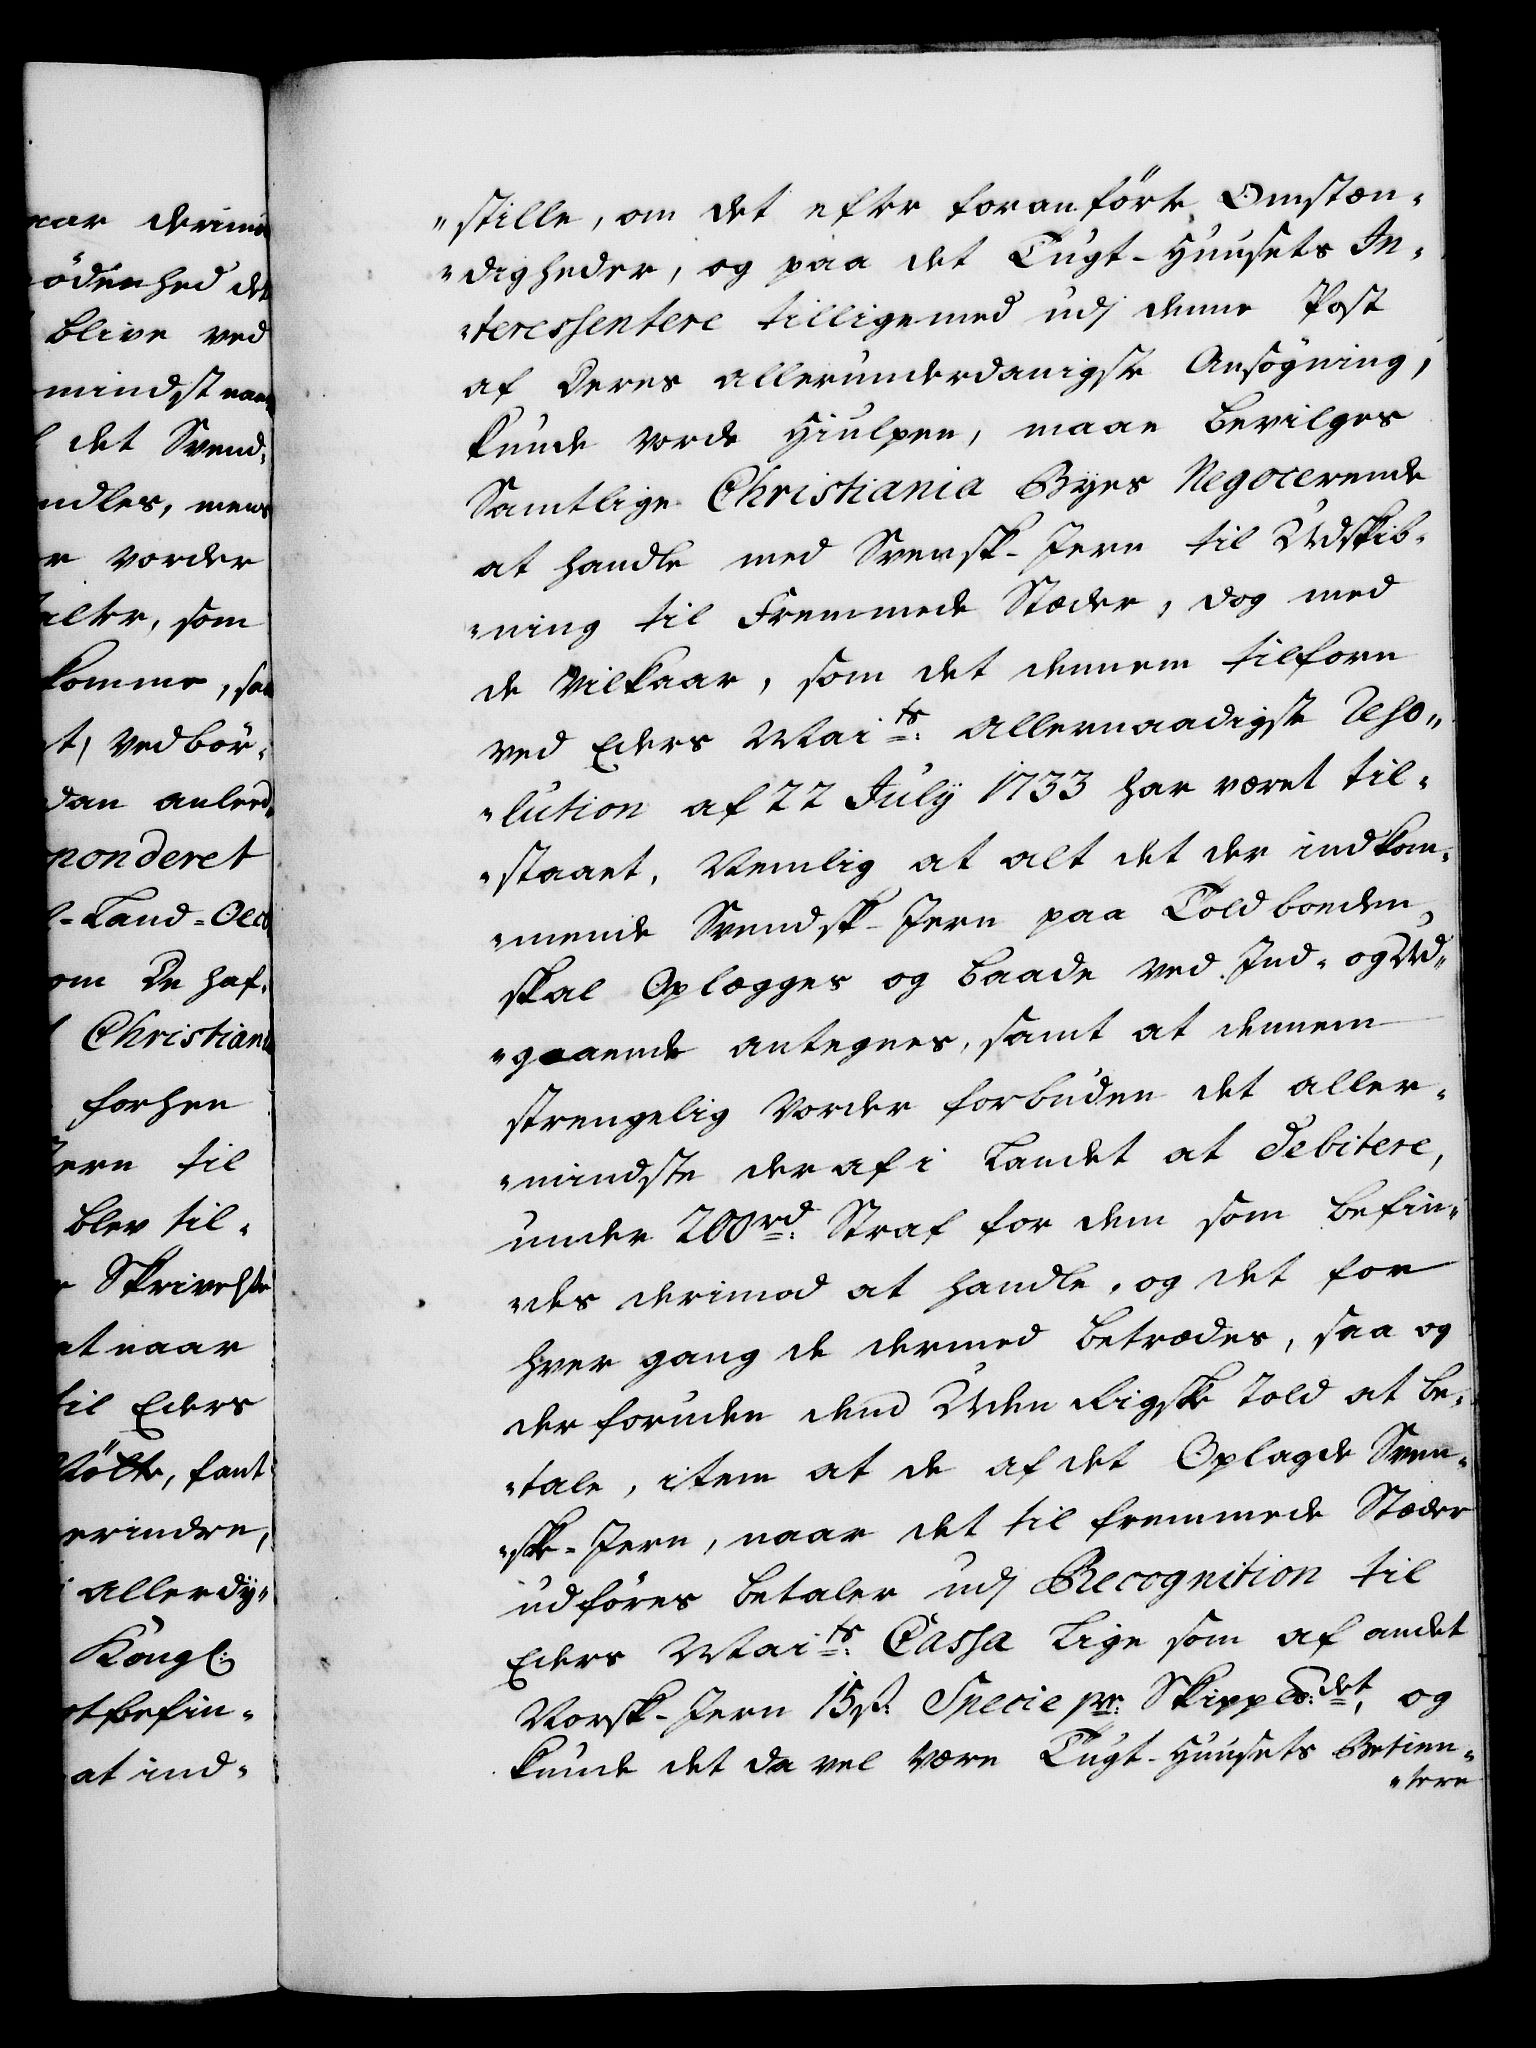 nar derimo
ödenhed det
blive ved
mindst naar
det Svend-
ndles, mens
r vorder
alter, som
komme, saa
t, vedbör-
dan anleed-
ponderet
l-Land-Oeco
om De haf-
Christiania
forhen
Jern til
blev til-
Skrivelse
at naar
til Eders
Nölte, fant
erindre,
allerdÿ-
Kongl:
otbefin-
at ind-
"stille, om det efter foranförte Omstæn-
"digheder, og paa det Tugt-Huusets In-
"teressentere tilligemed udj denne Post
af deres allerunderdanigste Ansögning,
kunde vorde Hiulpen, maae bevilges
Samtlige Christiania Byes Negocerende
at handle med Svensk-Jern til Udskib-
"ning til Fremmede Stæder, dog med
de Vilkaar, som det dennem tilforn
ved Eders Mai:ts allernaadigste Reso-
"lution af 22 Julÿ 1733 har været til-
"staaet, Nemlig at alt det der indkom-
"mende Svendsk-Jern paa Toldboeden,
skal Oplægges og baade ved Ind- og Ud-
"gaaende antegnes, samt at dennem
strengelig vorder forbuden det aller-
"mindste deraf i Landet at debitere,
under 200 rd: Straf for dem som befin-
"des derimod at handle, og det for
hver gang de dermed betrædes, saa og
der foruden dend Uden Rigske Told at be-
"tale, item at de af det Oplagde Sven-
"ske-Jern, naar det til fremmede Stæder
udföres betaler udj Recognition til
Eders Mai:ts Cassa lige som af andet
Norsk-Jern 15 ß: Specie pr: Skippd:det, og
kunde det da vel være Tugt-Huusets Betien-
"tere